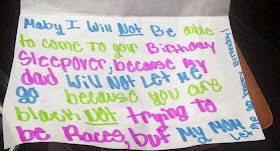 Maby I Will Not Be able
to come to your Birthday
sleepover, because My
dad Will Not Let Me
go because you are
black not trying to
be Races, but My MOM
Let Me
Birthday!